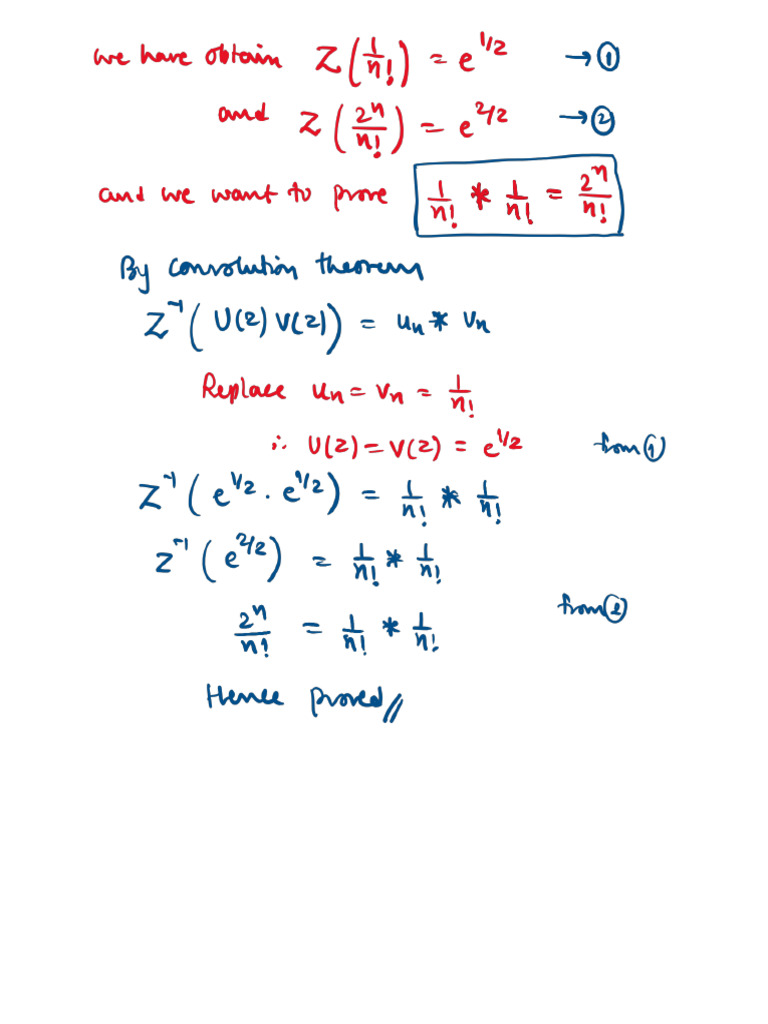 we have obtain Z(1/n!) = e^{1/z} → ①
and Z(2^n/n!) = e^{2/z} → ②
and we want to prove 1/n! * 1/n! = 2^n/n!
By convolution theorem
Z^{-1}(U(z) V(z)) = u_n * v_n
Replace u_n = v_n = 1/n!
∴ U(z) = V(z) = e^{1/z} from ①
Z^{-1}(e^{1/z} · e^{1/z}) = 1/n! * 1/n!
Z^{-1}(e^{2/z}) = 1/n! * 1/n!
2^n/n! = 1/n! * 1/n! from ②
Hence proved //